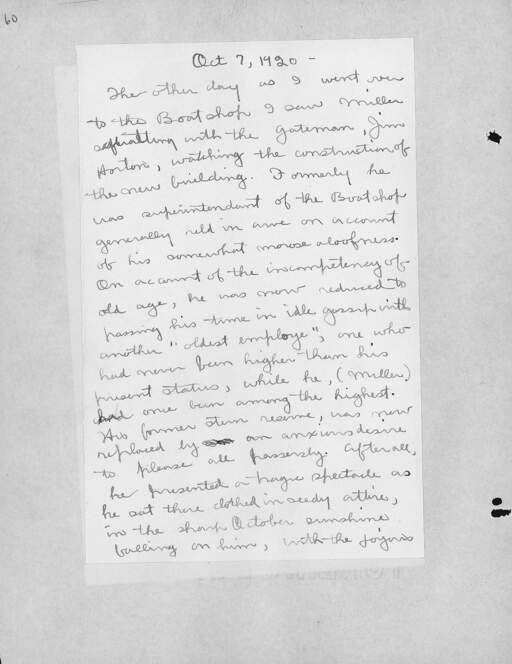 60
Oct 7, 1920 -
The other day as I went over
to the Boatshop I saw Miller
squatting with the gateman, Jim
Horton, watching the construction of
the new building. Formerly he
was superintendant of the Boatshop
generally held in awe on account
of his somewhat morose aloofness.
On account of the incompetency of
old age, he was now reduced to
passing his time in idle gossip with
another "oldest employe", one who
had never been higher than his
present status, while he, (Miller)
had once been among the highest.
His former stern resume, was now
replaced by an anxious desire
to please all passersby. After all,
he presented a tragic spectacle as
he sat there clothed in seedy attire,
in the sharp October sunshine
falling on him, with the joyous